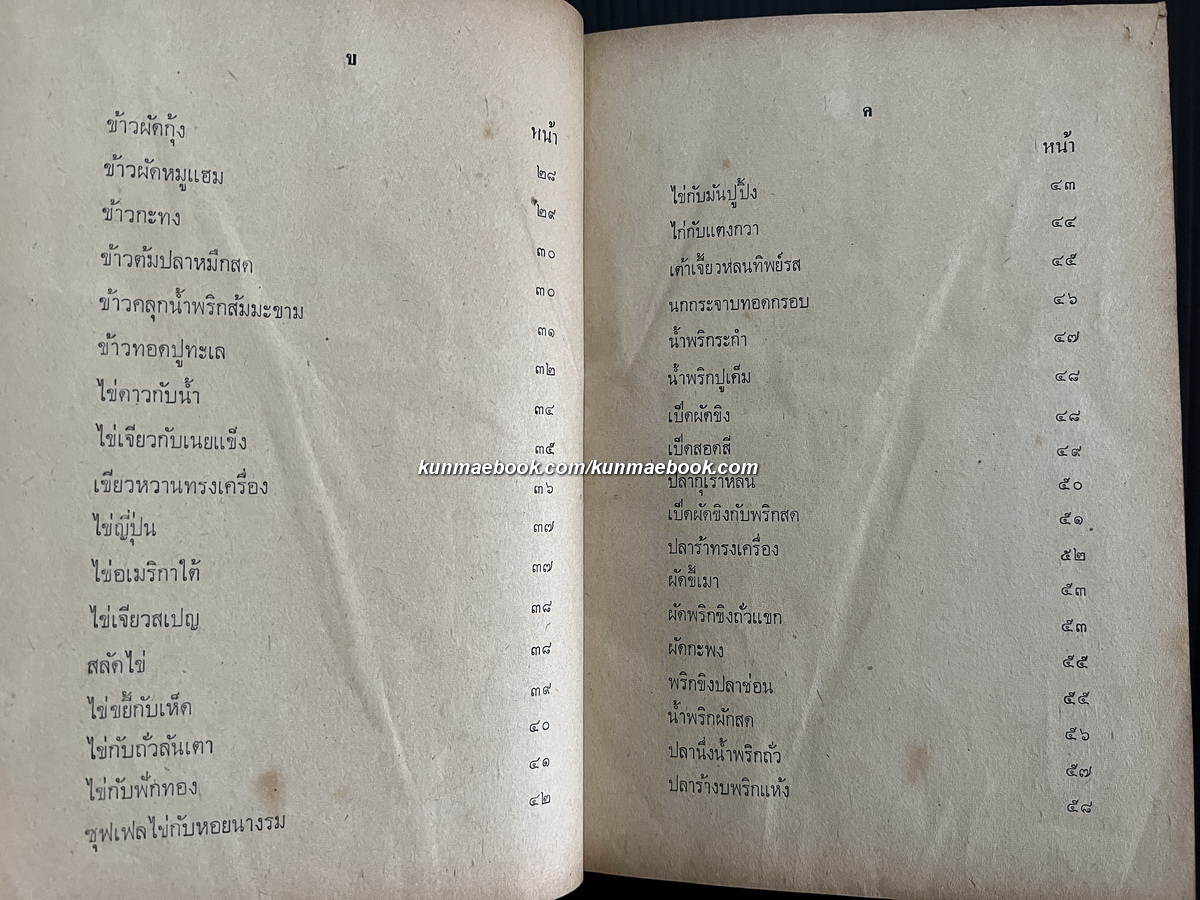 ข
หน้า
ข้าวผัดกุ้ง ๒๘
ข้าวผัดหมูแฮม ๒๙
ข้าวกะทง ๓๐
ข้าวต้มปลาหมึกสด ๓๐
ข้าวคลุกน้ำพริกส้มมะขาม ๓๑
ข้าวทอดปูทะเล ๓๒
ไข่ดาวกับน้ำ ๓๔
ไข่เจียวกับเนยแข็ง ๓๕
เขียวหวานทรงเครื่อง ๓๖
ไข่ญี่ปุ่น ๓๗
ไข่อเมริกาใต้ ๓๗
ไข่เจียวสเปญ ๓๘
สลัดไข่ ๓๘
ไข่ขยี้กับเห็ด ๓๙
ไข่กับถั่วลันเตา ๔๐
ไข่กับฟักทอง ๔๑
ซุฟเฟลไข่กับหอยนางรม ๔๒
ค
หน้า
ไข่กับมันปูปิ้ง ๔๓
ไก่กับแตงกวา ๔๔
เต้าเจี้ยวหลนทิพย์รส ๔๕
นกกระจาบทอดกรอบ ๔๖
น้ำพริกระกำ ๔๗
น้ำพริกปูเค็ม ๔๘
เป็ดผัดขิง ๔๘
เป็ดสอดสี ๔๙
ปลากุเราหลน ๕๐
เป็ดผัดขิงกับพริกสด ๕๑
ปลาร้าทรงเครื่อง ๕๒
ผัดขี้เมา ๕๓
ผัดพริกขิงถั่วแขก ๕๓
ผัดกะพง ๕๕
พริกขิงปลาช่อน ๕๕
น้ำพริกผักสด ๕๖
ปลานึ่งน้ำพริกถั่ว ๕๗
ปลาร้างบพริกแห้ง ๕๘
kunmaebook.com/kunmaebook.com